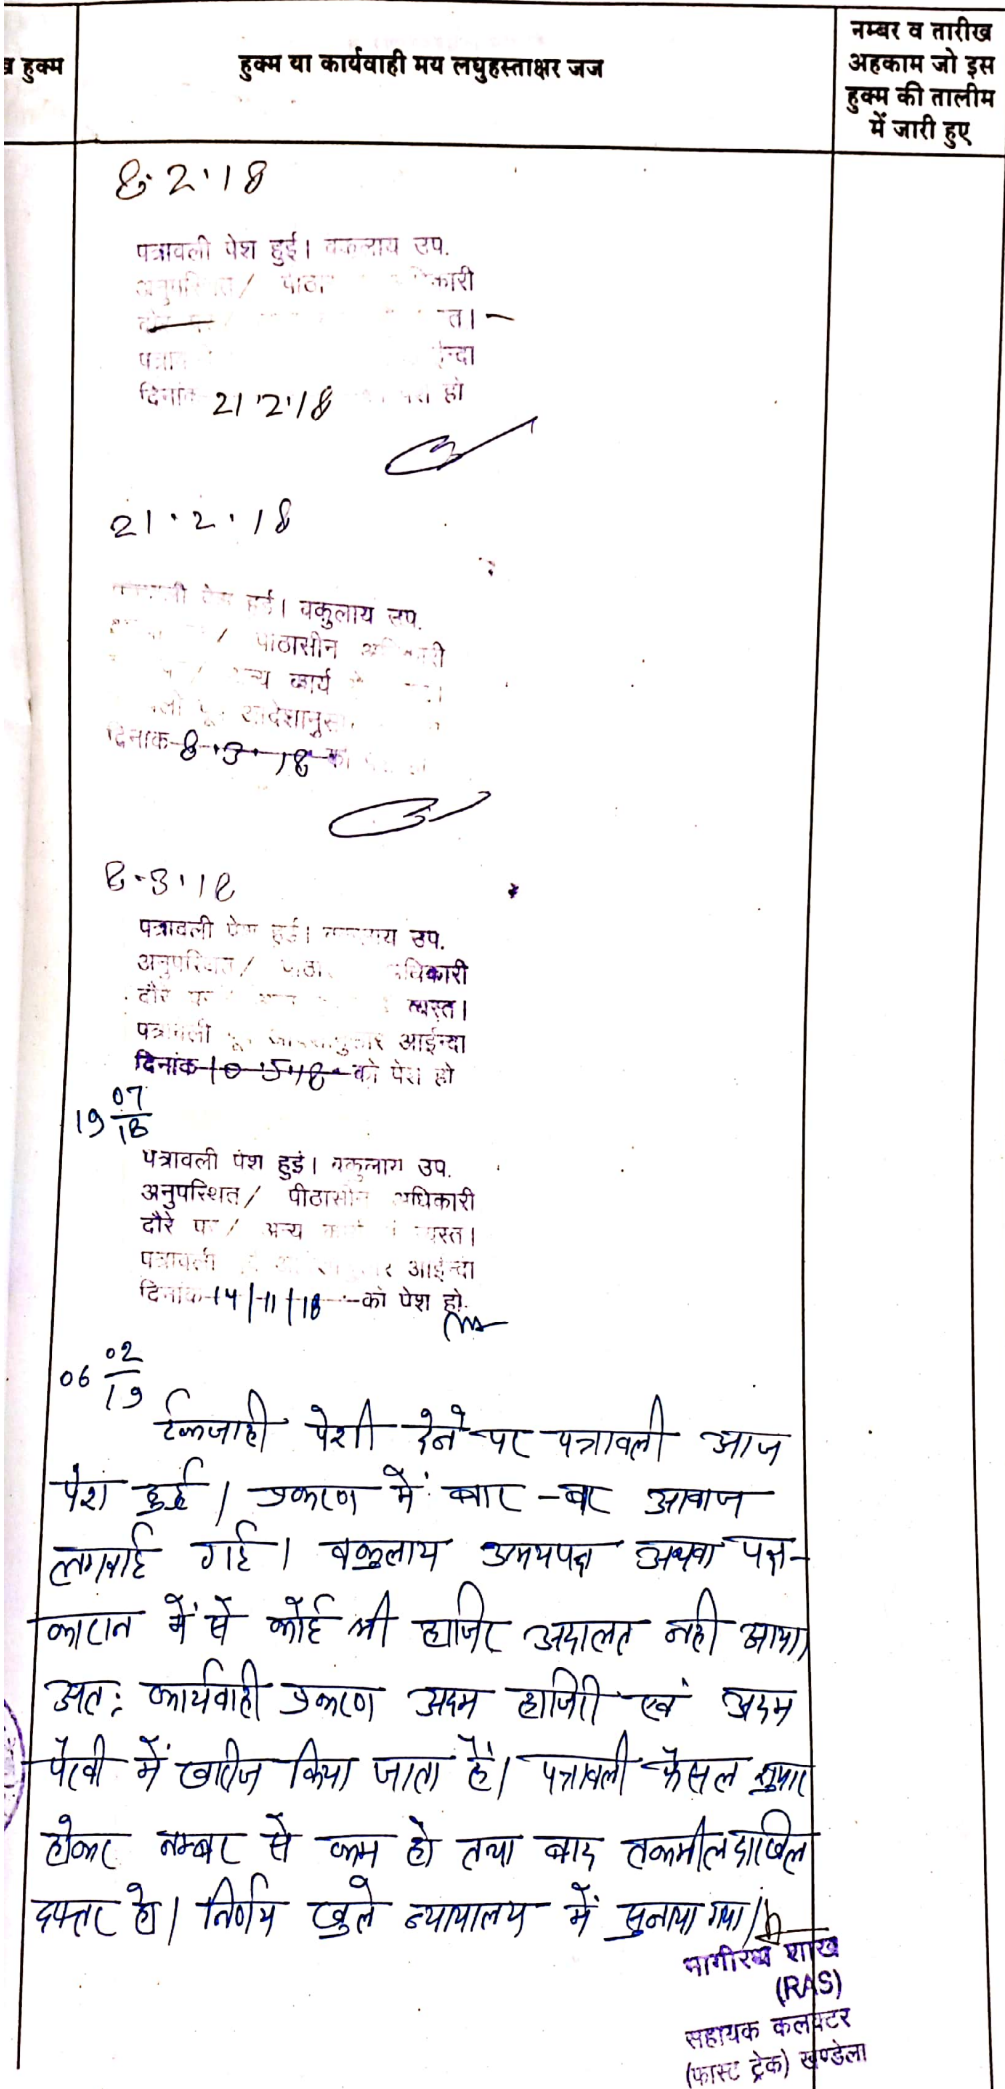 हुक्म
हुक्म या कार्यवाही मय लघुहस्ताक्षर जज
नम्बर व तारीख
अहकाम जो इस
हुक्म की तालीम
में जारी हुए
8.2.18
पत्रावली पेश हुई। वकुलाय उप.
त।
दिनांक 21.2.18 पेश हो
21.2.18
हुई। वकुलाय उप.
/ पीठासीन अधिकारी
/ अन्य कार्य
आदेशानुसार
दिनांक 8.3.18 को
8.3.18
पत्रावली पेश हुई। वकुलाय उप.
अनुपस्थित / अधिकारी
दौरे पर व्यस्त।
पत्रावली आईन्दा
दिनांक 10.5.18 को पेश हो
19 07/18
पत्रावली पेश हुई। वकुलाय उप.
अनुपस्थित / पीठासीन अधिकारी
दौरे पर / अन्य व्यस्त।
पत्रावली आईन्दा
दिनांक 14/11/18 को पेश हो.
06 02/19
पेशी देने पर पत्रावली आज
पेश हुई। प्रकरण में बार-बार आवाज
लगवाई गई। वकुलाय उभयपक्ष अथवा पक्ष-
कारान में से कोई भी हाजिर अदालत नही आया।
अतः कार्यवाही प्रकरण अदम हाजिरी एवं अदम
पैरवी में खारीज किया जाता है। पत्रावली फैसल शुमार
होकर नम्बर से कम हो तथा बाद तकमील दाखिल
दफ्तर हो। निर्णय खुले न्यायालय में सुनाया गया।
भागीरथ शाख
(RAS)
सहायक कलक्टर
(फास्ट ट्रेक) खण्डेला